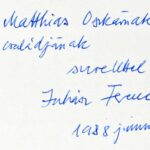 Matthias Oskárnak
családjának
szeretettel
Juhász Ferenc
1988 június